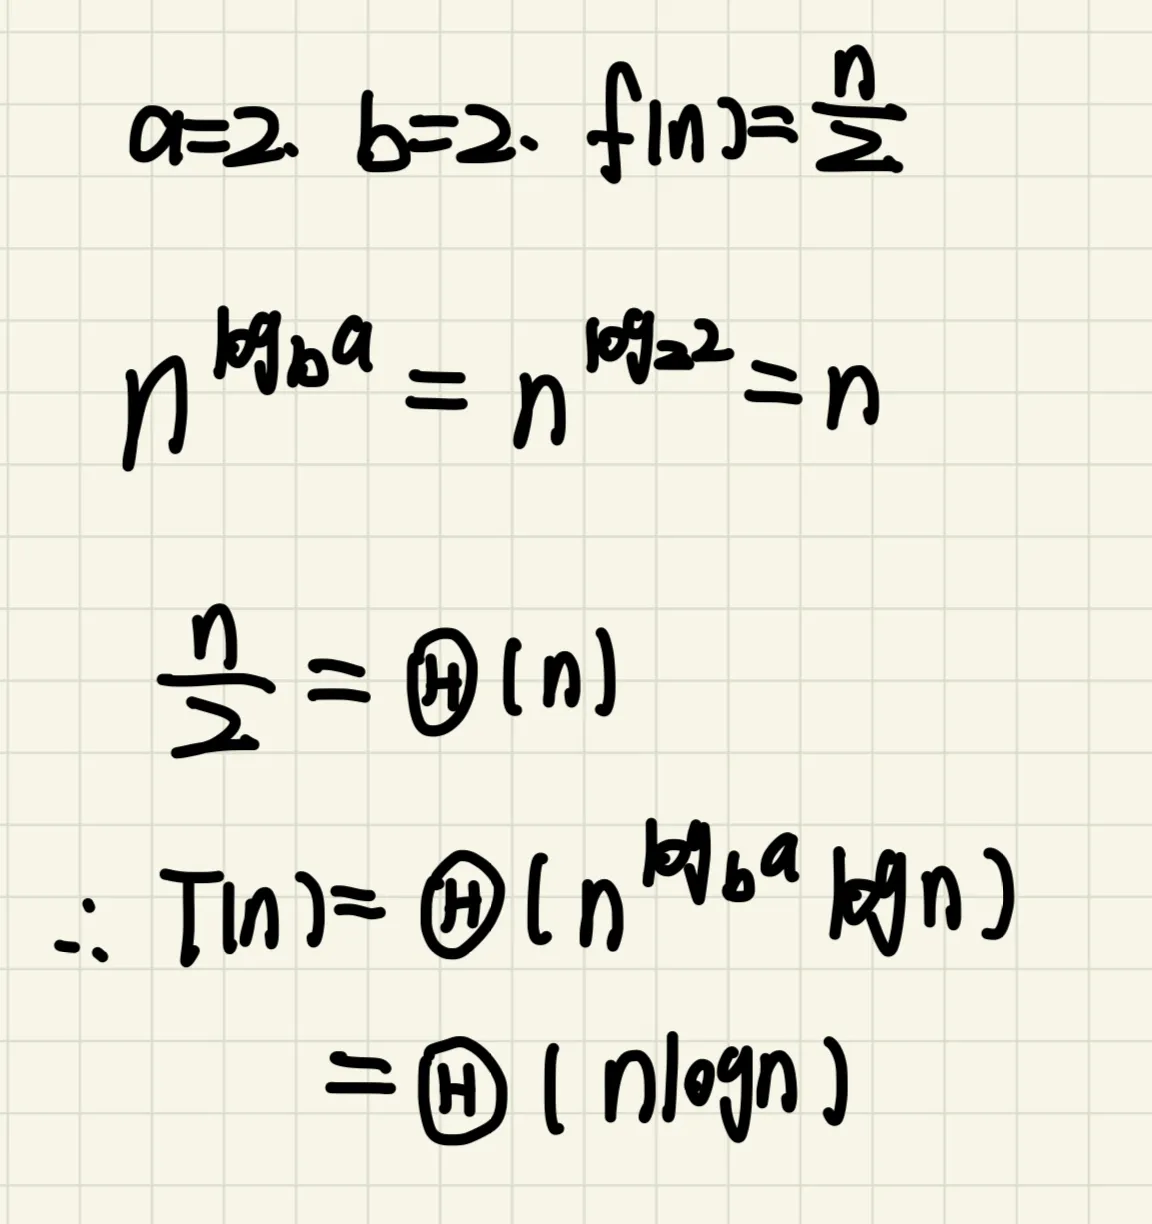 a=2. b=2. f(n)=n/2
n^log_b a = n^log_2 2 = n
n/2 = Θ(n)
∴ T(n)= Θ(n^log_b a log n)
= Θ(nlogn)